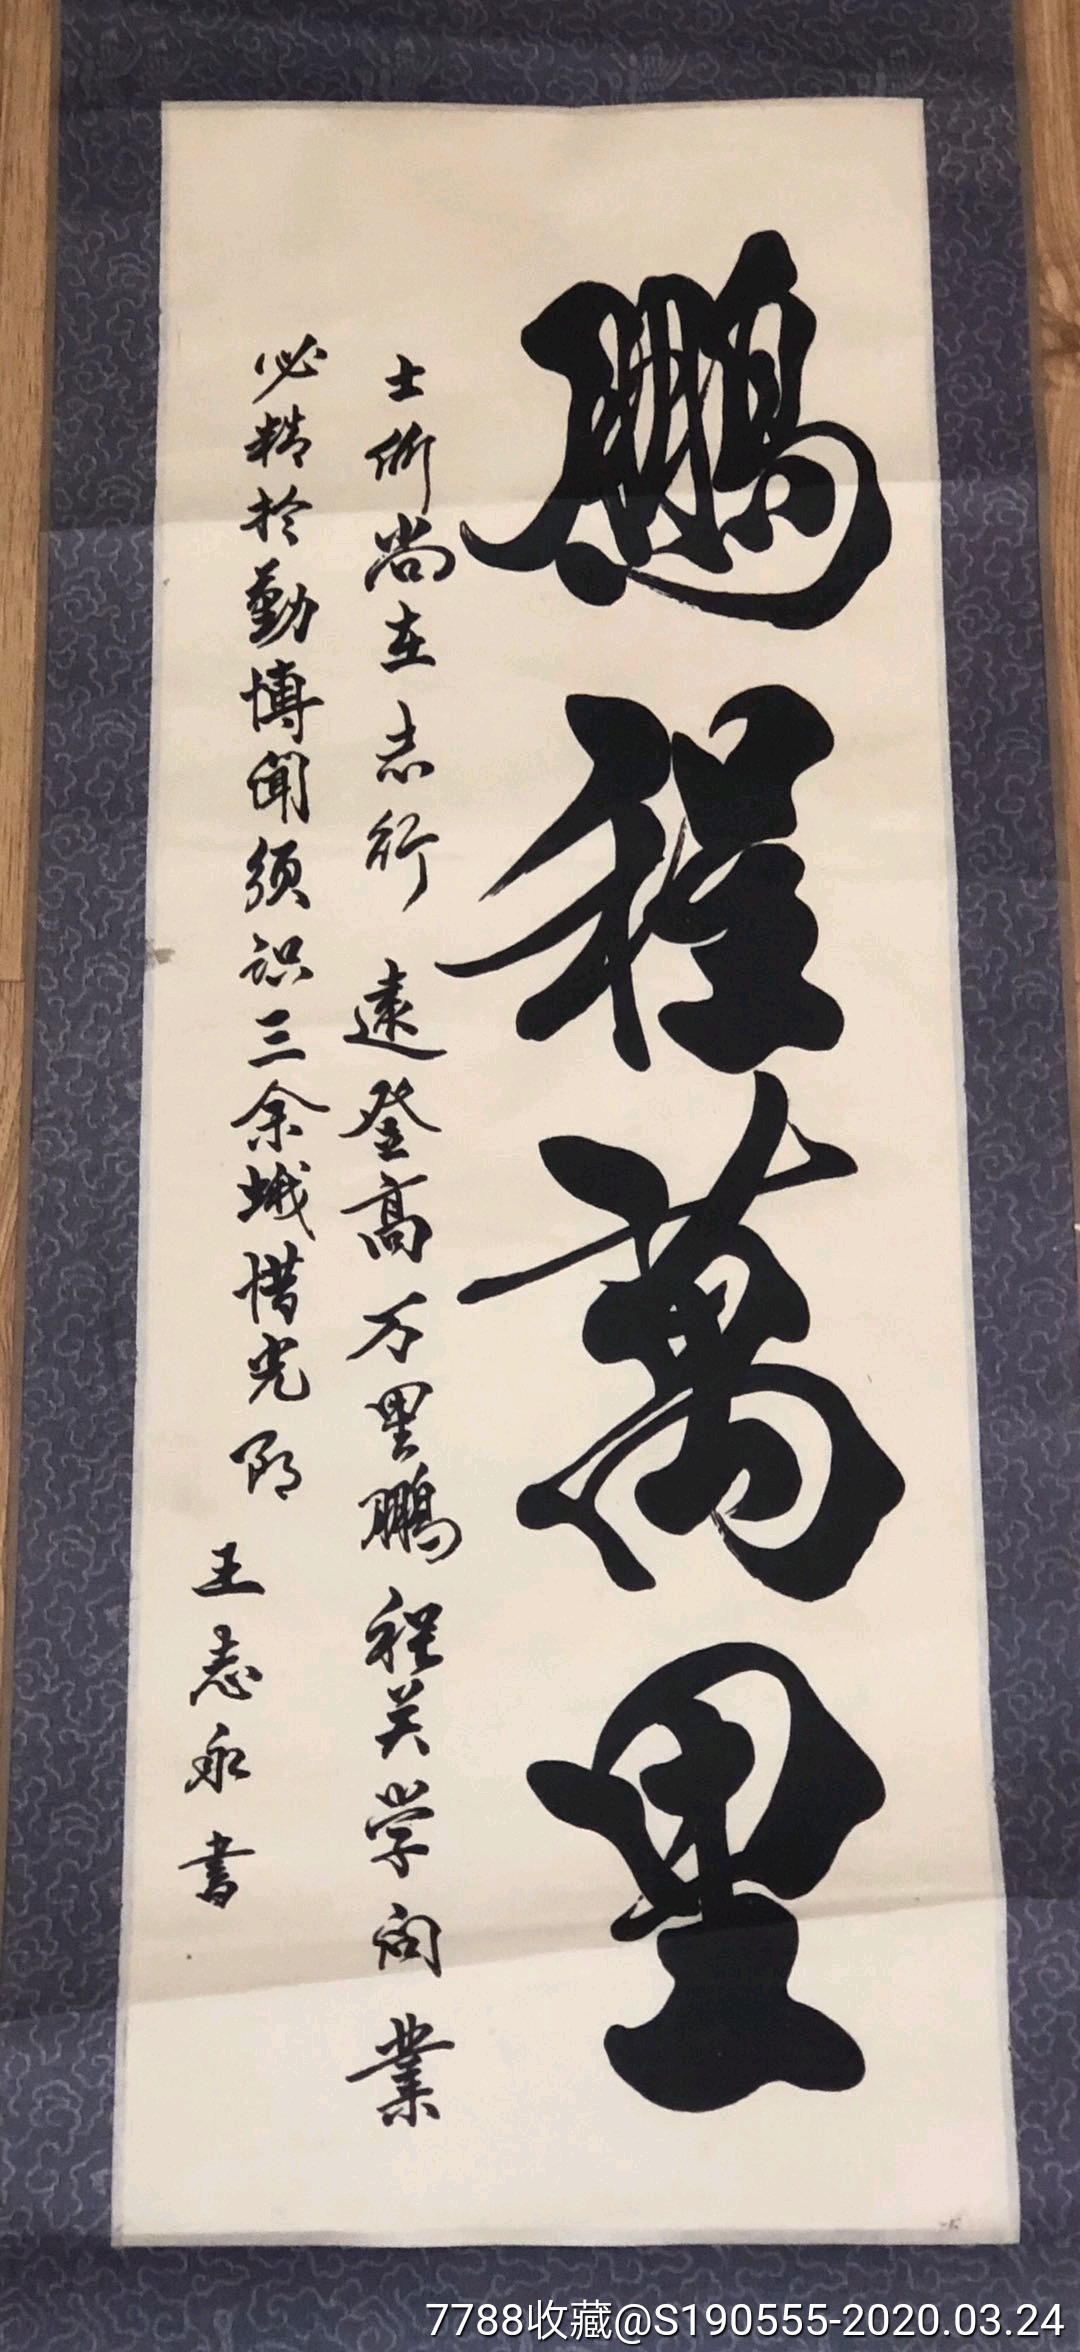 鹏程萬里
士所尚在志行遠登高万里鹏程关学问業
必精於勤博闻须识三余蛾惜光阴
王志永書
7788收藏@S190555-2020.03.24